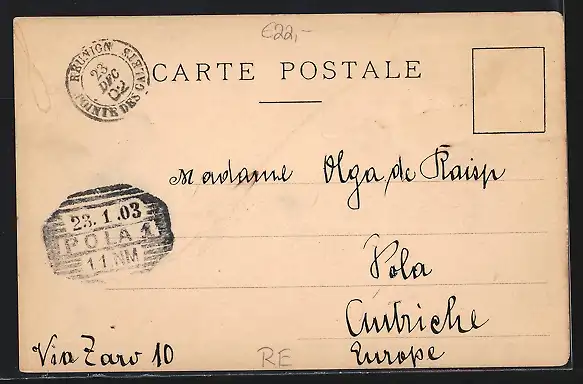 €22,-
REUNION
23
DEC
02
POINTE DES GALETS
CARTE POSTALE
Madame Olga de Raisp
23.1.03
POLA 1
11.NM
Pola
Autriche
Via Zaro 10
RE
Europe